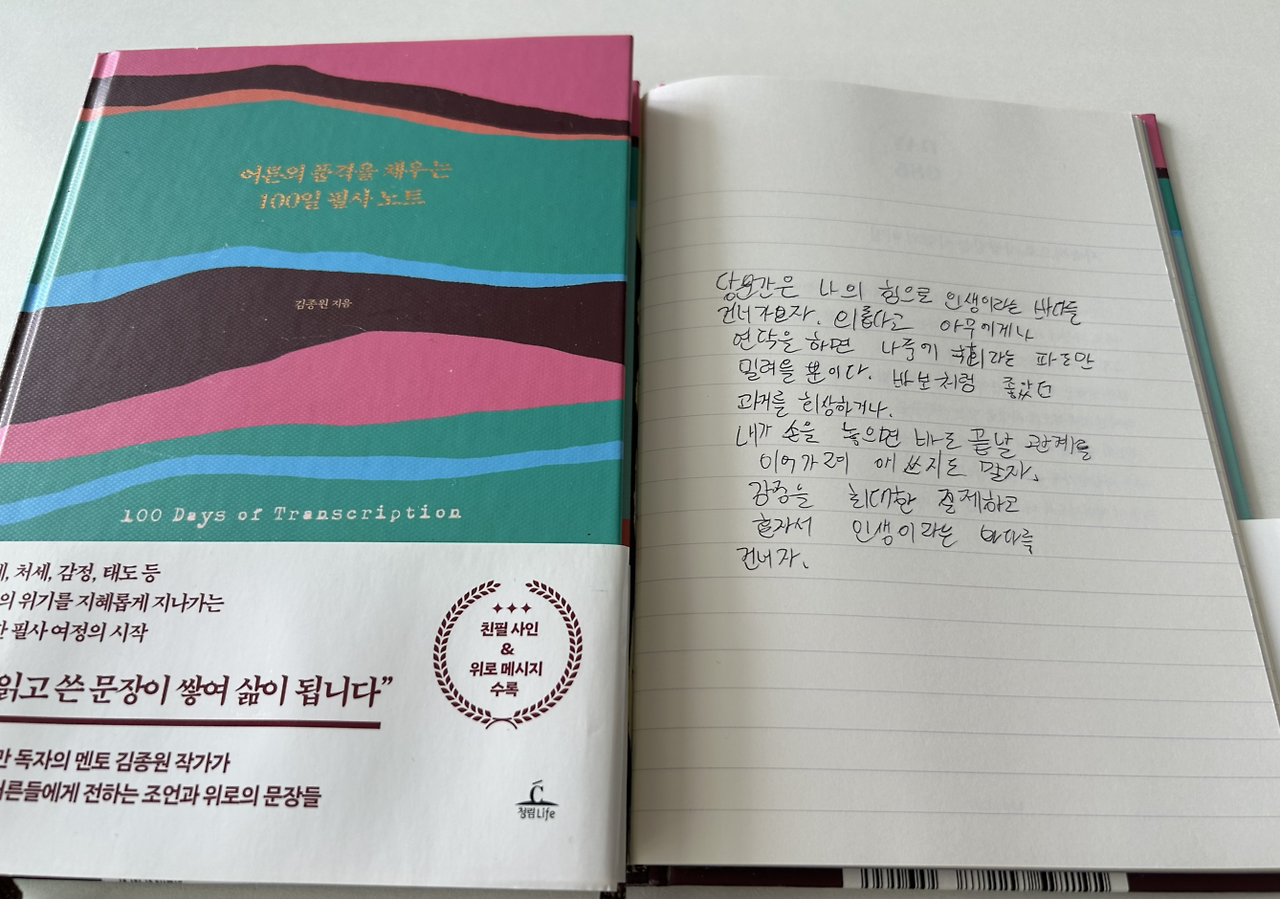 어른의 품격을 채우는
100일 필사 노트
김종원 지음
100 Days of Transcription
, 처세, 감정, 태도 등
의 위기를 지혜롭게 지나가는
필사 여정의 시작
읽고 쓴 문장이 쌓여 삶이 됩니다”
독자의 멘토 김종원 작가가
어른들에게 전하는 조언과 위로의 문장들
친필 사인
&
위로 메시지
수록
청림Life
당분간은 나의 힘으로 인생이라는 바다를
건너가보자. 외롭다고 아무에게나
연락을 하면 나중에 후회라는 파도만
밀려올 뿐이다. 바보처럼 좋았던
과거를 회상하거나.
내가 손을 놓으면 바로 끝날 관계를
이어가려 애쓰지도 말자.
감정을 최대한 절제하고
혼자서 인생이라는 바다를
건너자.